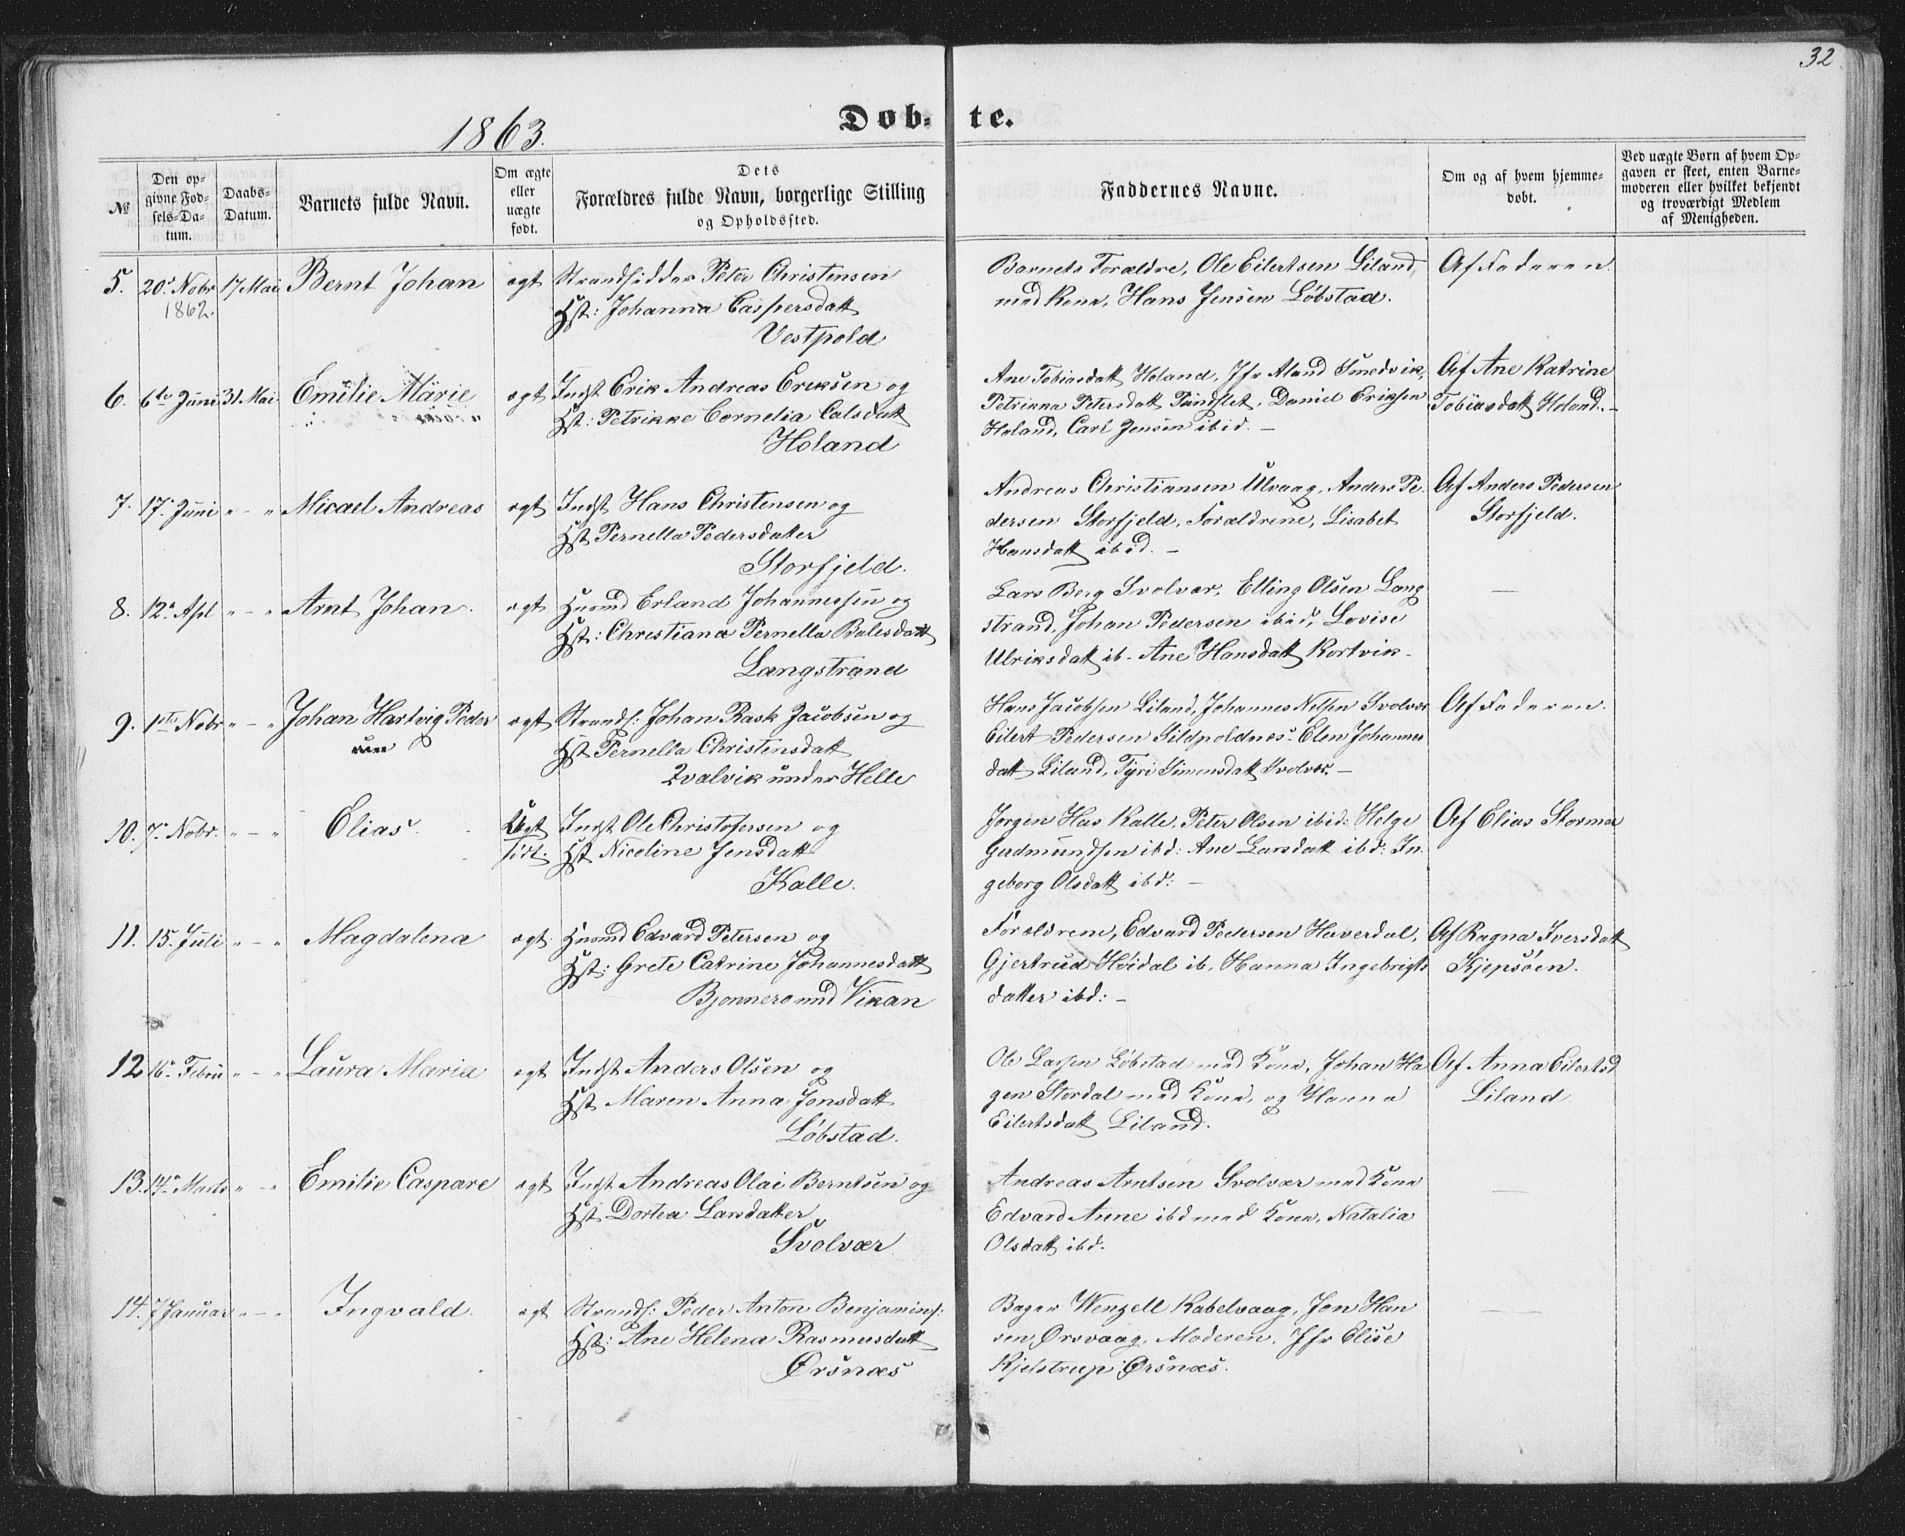 32
1863.
Døb- te.
№
Den op-
givne Fød-
sels-Da-
tum.
Daabs-
Datum.
Barnets fulde Navn.
Om ægte
eller
uægte
født.
Dets
Forældres fulde Navn, borgerlige Stilling
og Opholdssted.
Faddernes Navne.
Om og af hvem hjemme-
døbt.
Ved uægte Børn af hvem Op-
gaven er skeet, enten Barne-
moderen eller hvilket bekjendt
og troværdigt Medlem
af Menigheden.
5. 20de Nobr 17 Mai Bernt Johan ægt Strandsidder Peter Christensen
1862.
Hst: Johanna Caspersdatt
Vestpold
Barnets Forældre, Ole Eilertsen Liland,
med Kone, Hans Jensen Løbstad.
Af Faderen.
6. 6te Juni 31 Mai Emilie Marie ægt Indst Erik Andreas Eriksen og
Hst: Petrikke Cornelia Calsdatt
Holand
Ane Tobiasdatt Holand, Jfr Aland Smedvik,
Petrikka Petersdatt Pundslet, Daniel Eriksen
Holand, Carl Jensen ibid. -
Af Ane Katrine
Tobiasdatt Holand. -
7. 17. Juni " - " Micael Andreas ægt Indst Hans Christensen og
Hst Pernella Pedersdatter
Storfjeld.
Andreas Christiansen Ulvaag, Anders Pe-
dersen Storfjeld, Forældrene, Lisabet
Hansdatt ibid. -
Af Anders Pedersen
Storfjeld.
8. 12te Apl " - " Arnt Johan. ægt Husmd Erland Johannessen og
Hst: Christiana Pernella Balesdatt
Langstrand
Lars Berg Svolvær, Elling Olsen Lang
strand, Johan Pedersen ibid, Lovise
Ulriksdatt ib- Ane Hansdatt Kortvik-
—
9. 1ste Nobr " - " Johan Hartvig Peder ægt Strands: Johan Rask Jacobsen og
Hst Pernella Christensdatt
Qvalvik under Helle
Hans Jacobsen Liland, Johannes Nilsen Svolvær
Eilert Pedersen Sildpoldnes- Elen Johannes
datt Liland, Tyri Simensdatt Svolvær. -
Af Faderen.
10. 7de Nobr. " - " Elias. Uægt Indst Ole Christofersen og
født. Hst Nicoline Jensdatt
Kalle.
Jørgen Has Kalle, Peter Olsen ibid: Helge
Gudmundsen ibd: Ane Larsdatt ibd: In-
geborg Olsdatt ibd: -
Af Elias Stormo
11. 15. Juli " - " Magdalena ægt Husmd Edvard Petersen og
Hst: Grete Catrine Johannesdatt
Bjonneromd Vikan
Forældrene, Edvard Pedersen Haverdal,
Gjertrud Høidal ib, Hanna Ingebrigts
datter ibd: -
Af Ragna Iversdatt
Kjepsøen.
12 16de Febru " - " Laura Maria ægt Indst Anders Olsen og
Hst Maren Anna Jonsdatt
Løbstad.
Ole Larsen Løbstad med Kone, Johan Ha
gen Stordal med Kone, og Hanna
Eilertsdatt Liland.
Af Anna Eilertsd
Liland
13. 14de Marts " - " Emilie Caspare ægt Indst Andreas Olai Berntsen og
Hst Dortea Larsdatter
Svolvær
Andreas Arntsen Svolvær med Kone
Edvard Anne ibd med Kone, Natalia
Olsdatt ibd.
—
14. 7 Januar " - " Ingvald. ægt Strands: Peder Anton Benjamins:
Hst: Ane Helena Rasmusdatt
Ørsnæs
Bager Wenzell Kabelvaag, Jon Han
sen Ørsvaag, Moderen, Jfr Elise
Kjelstrup Ørsnæs.
—